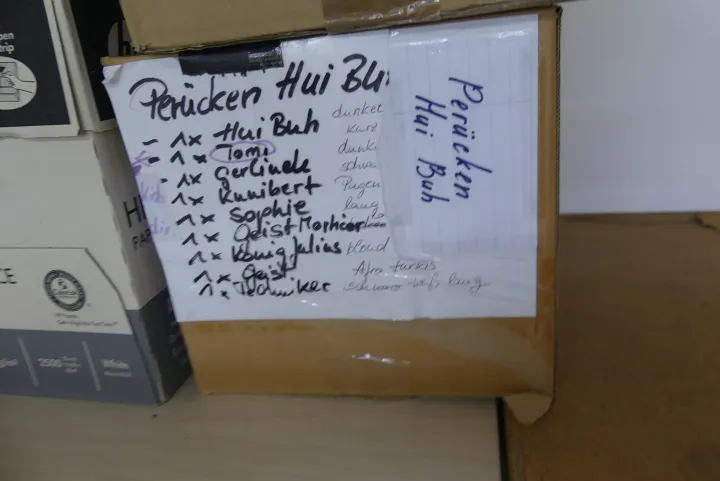 Perücken Hui Buh
- 1x Hui Buh dunkel kurz
- 1x Tomi dunkel
- 1x Gerlinde schwa
1x Kunibert Pagen
1x Sophie lang
1x Geist Mortimer
1x König Julius blond
1x Geist Afro türkis
1x Techniker schwarz-weiß lang
Perücken
Hui Buh
2500
White